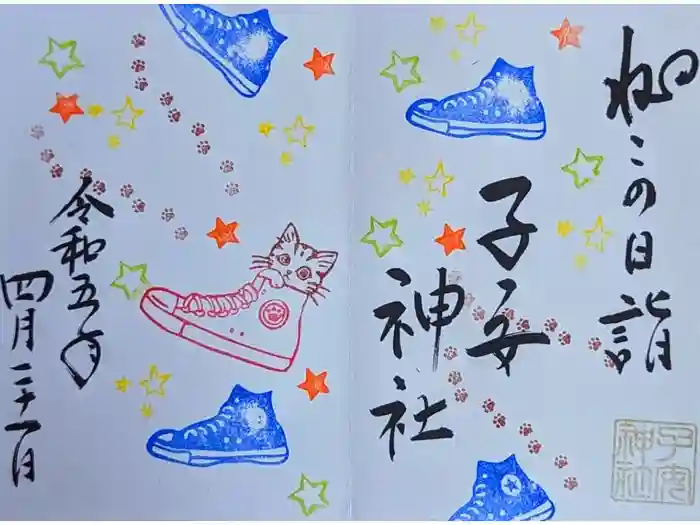 ねこの日詣
子安
神社
令和五年
四月二十一日
子安
神社